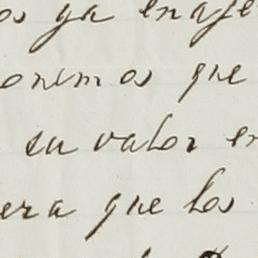 os ya enaje
onemos que
su valor en
era que los